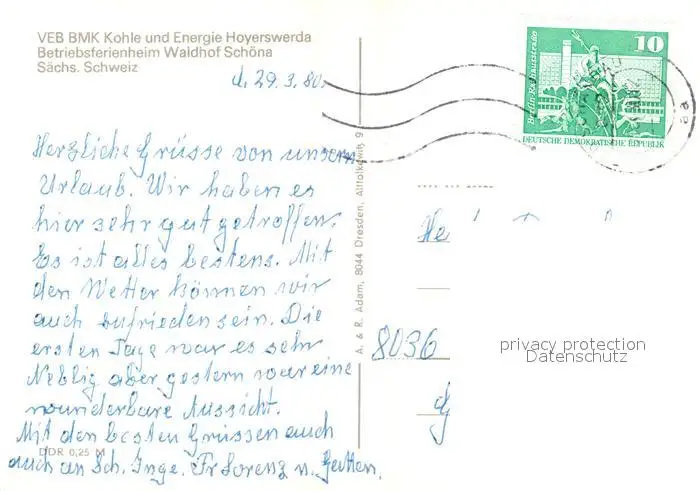 VEB BMK Kohle und Energie Hoyerswerda
Betriebsferienheim Waldhof Schöna
Sächs. Schweiz
d. 29.3.80.
Herzliche Grüsse von unserm
Urlaub. Wir haben es
hier sehr gut getroffen.
Es ist alles bestens. Mit
den Wetter können wir
auch zufrieden sein. Die
ersten Tage war es sehr
Neblig aber gestern war eine
wunderbare Aussicht.
Mit den besten Grüssen auch
auch an Sch. Inge. Fr Lorenz u.
DDR 0,25 M
A. & R. Adam, 8044 Dresden, Altlokewitz 9
10
Berlin-Rathausstraße
DEUTSCHE DEMOKRATISCHE REPUBLIK
He
8036
privacy protection
Datenschutz